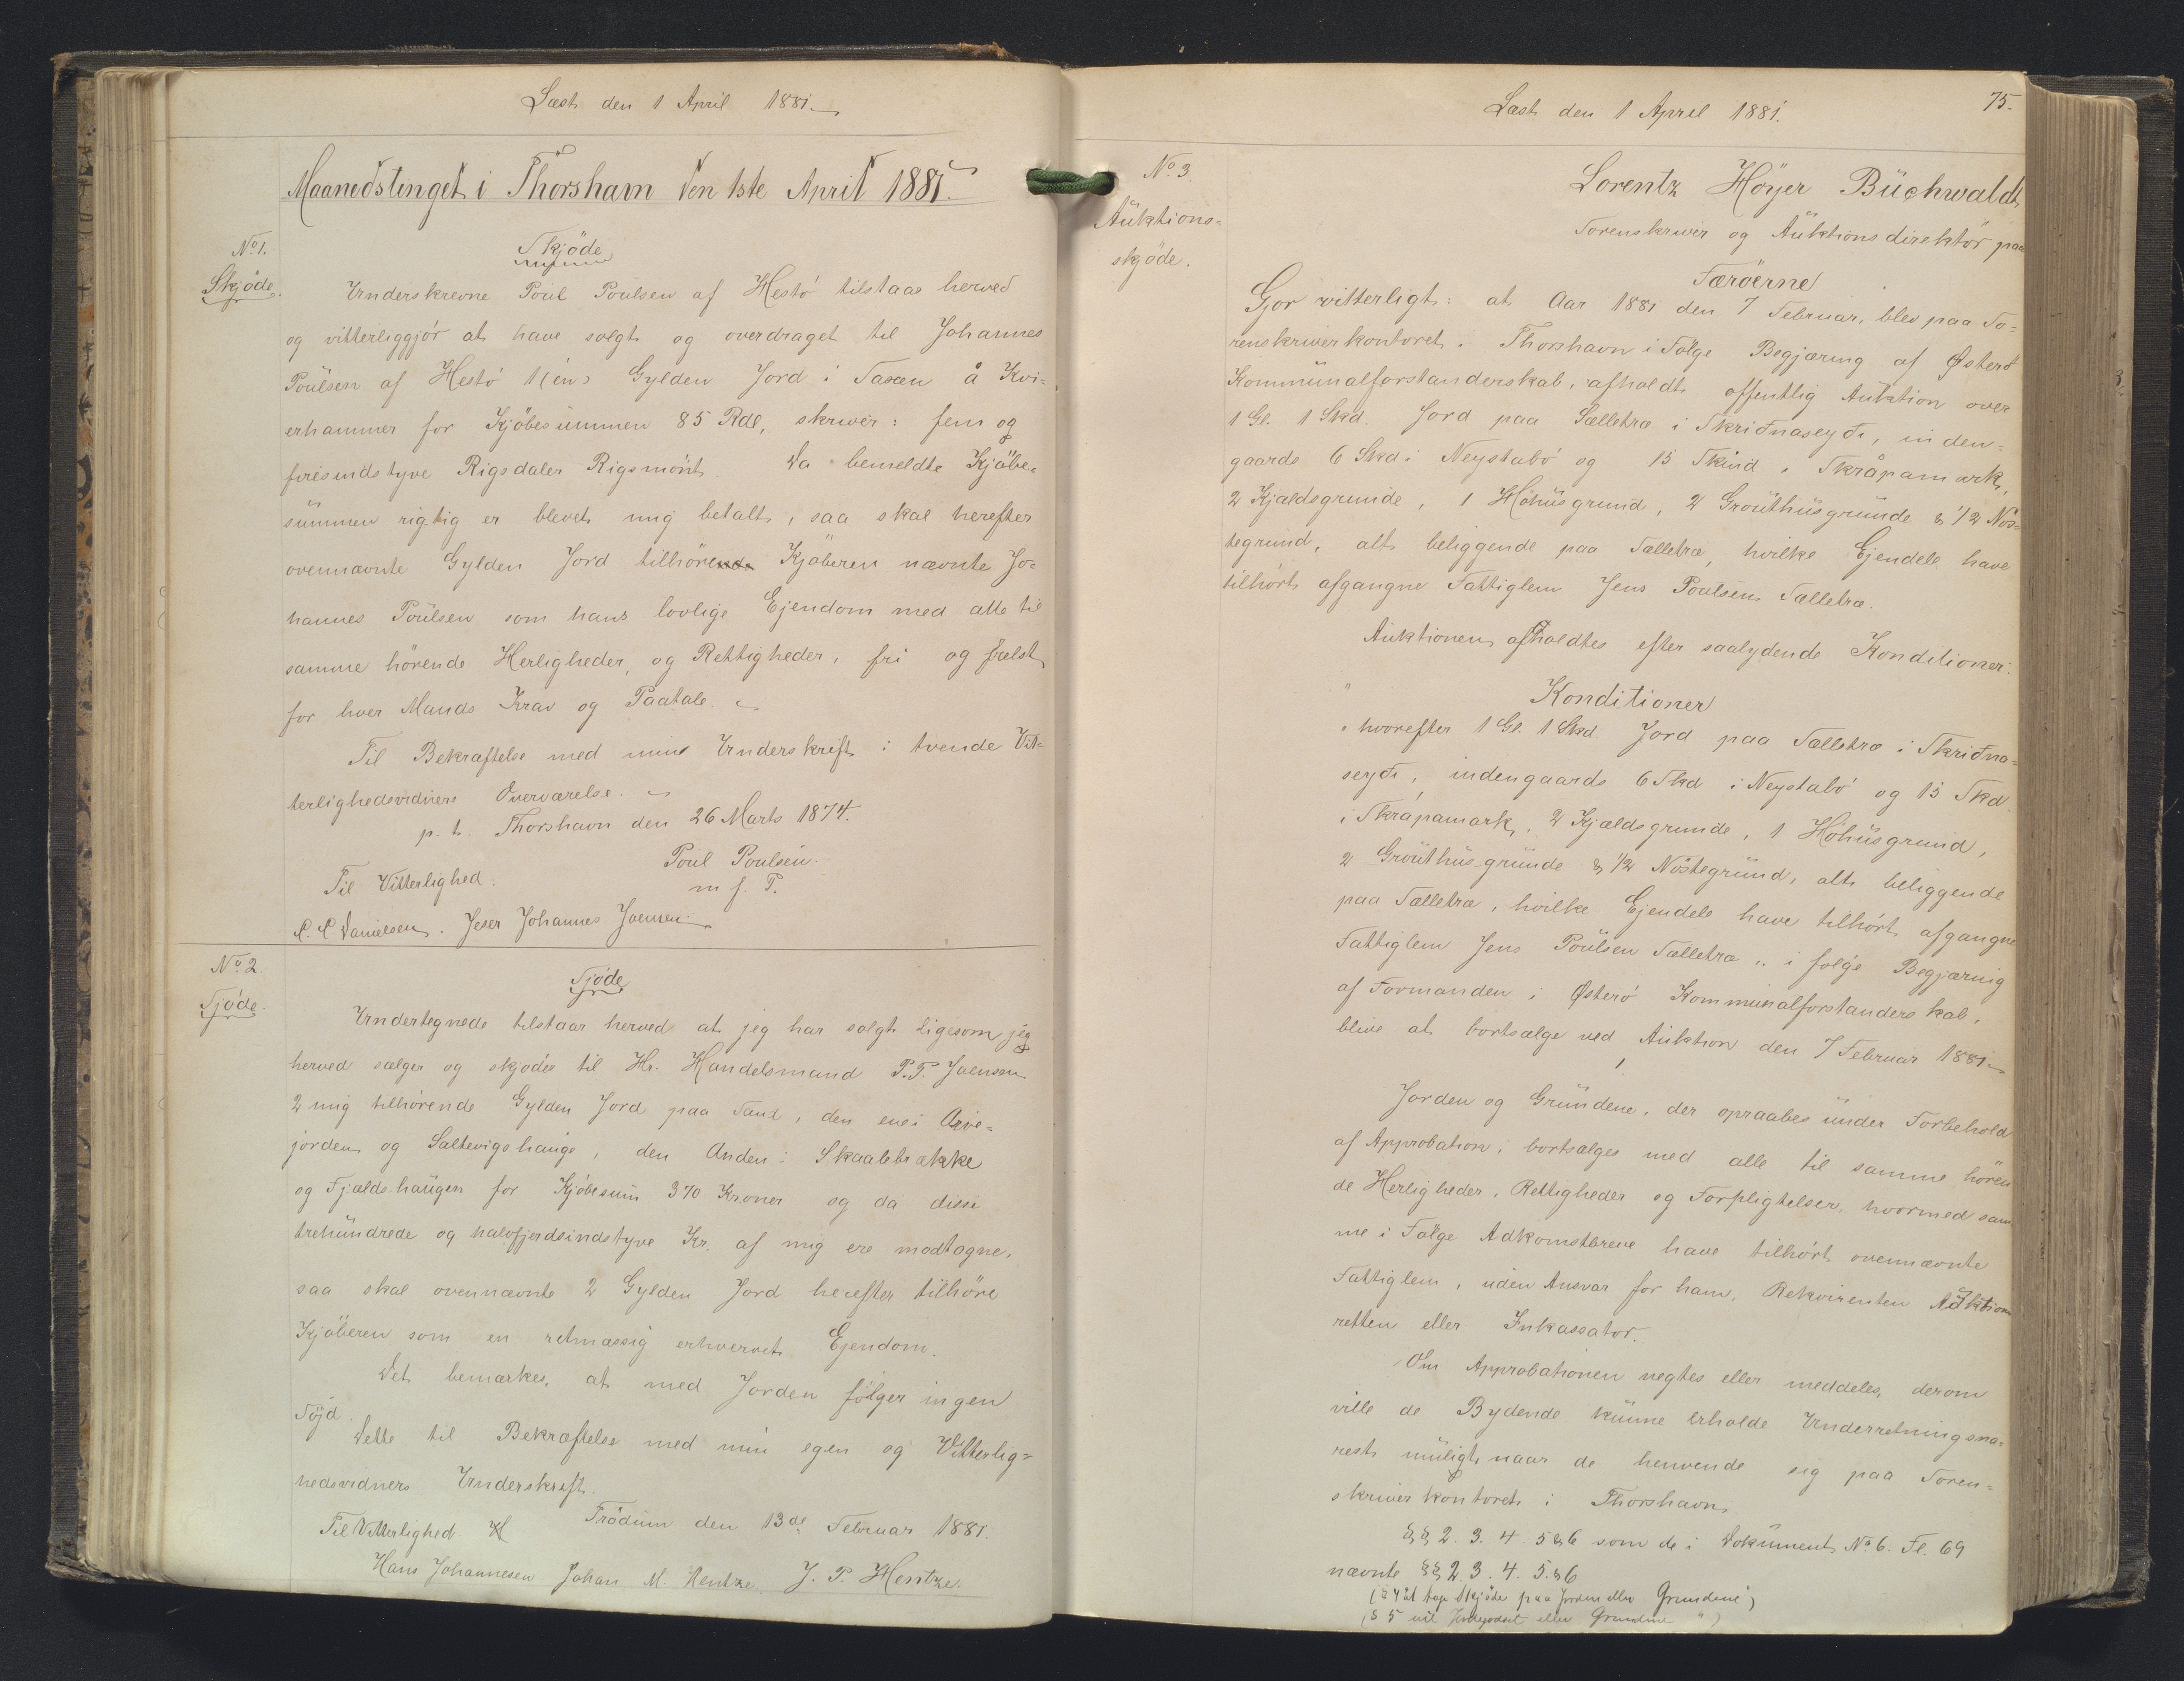 Læst den 1 April 1881.
Maanedstinget i Thorshavn den 1ste April 1881.
No 1.
Skjöde.
Skjöde
Underskrevne Poul Poulsen af Hestö tilstaar herved
og vitterliggjör at have solgt og overdraget til Johannes
Poulsen af Hestö 1 (én) Gylden Jord i Taxen á Kvi=
erhammer for Kjöbesummen 85 Rdl, skriver: fem og
firsindstyve Rigsdaler Rigsmönt. Da bemeldte Kjöbe=
summen rigtig er blevet mig betalt, saa skal herefter
ovennævnte Gylden Jord tilhöre Kjöberen nævnte Jo=
hannes Poulsen som hans lovlige Ejendom med alle til
samme hörende Herligheder, og Rettigheder, fri og frelst
for hver Mands Krav og Paatale.
Til Bekræftelse med min Underskrift i tvende Vit=
terlighedsvidners Overværelse.
p. t. Thorshavn den 26 Marts 1874.
Poul Poulsen
m f. P.
Til Vitterlighed.
C. C. Danielsen. Jeser Johannes Joensen
No 2.
Sjöde.
Sjöde
Undertegnede tilstaar herved at jeg har solgt ligesom jeg
herved sælger og skjöder til Hr. Handelsmand P. T. Joensen
2 mig tilhörende Gylden Jord paa Sand, den ene i Arve=
jorden og Saltevigshauge, den Anden i Skaalebrække
og Fjældshaugen for Kjöbesum 370 Kroner og da disse
trehundrede og halvfjerdsindstyve Kr. af mig ere modtagne,
saa skal ovennævnte 2 Gylden Jord herefter tilhöre
Kjöberen som en retmæssig erhvervet Ejendom.
Det bemærkes, at med Jorden fölger ingen
Töjd.
Dette til Bekræftelse med min egen og Vitterlig=
hedsvidners Underskrift.
Trödum den 13de Februar 1881.
Til Vitterlighed
Hans Johannesen Johan M. Hentze. J. P. Hentze.
Læst den 1 April 1881.
75.
No 3.
Auktions=
skjöde.
Lorentz Höyer Büchwaldt
Sorenskriver og Auktionsdirektör paa
Færöerne
Gjor vitterligt: at Aar 1881 den 7 Februar, blev paa So=
renskriverkontoret i Thorshavn i Fölge Begjæring af Österö
Kommunalforstanderskab, afholdt offentlig Auktion over
1 Gl. 1 Skd. Jord paa Sælletræ i Skriðnaseyði, inden=
gaards 6 Skd i Neystabö og 15 Skind i Skrápamark,
2 Kjældsgrunde, 1 Höhusgrund, 2 Grouthusgrunde & 1/2 Nös=
tegrund, alt beliggende paa Sælletræ, hvilke Ejendele have
tilhört afgangne Fattiglem Jens Poulsen Sælletræ.
Auktionen afholdtes efter saalydende Konditioner:
" Konditioner
" hvorefter 1 Gl. 1 Skd. Jord paa Sælletræ i Skriðna=
seyði, indengaards 6 Skd i Neystabö og 15 Skd
i Skrápamark, 2 Kjældsgrunde, 1 Höhusgrund,
2 Grouthusgrunde & 1/2 Nöstegrund, alt beliggende
paa Sælletræ, hvilke Ejendele have tilhört afgangne
Fattiglem Jens Poulsen Sælletræ " i fölge Begjæring
af Formanden i Österö Kommunalforstanderskab,
blive at bortsælge ved Auktion den 7 Februar 1881.
1.
Jorden og Grundene, der opraabes under Forbehold
af Approbation, bortsælges med alle til samme hören
de Herligheder, Rettigheder og Forpligtelser, hvormed sam
me i Fölge Adkomstbreve have tilhört ovennævnte
Fattiglem, uden Ansvar for ham, Rekvirenten Auktions
retten eller Inkassator.
Om Approbationen negtes eller meddeles, derom
ville de Bydende kunne erholde Underretning sna=
rest muligt naar de henvende sig paa Soren=
skriverkontoret i Thorshavn.
§§ 2. 3. 4. 5 & 6 som de i Dokument No 6. Fl. 69
nævnte §§ 2. 3. 4. 5. & 6
(§ 4 at tage Skjöde paa Jorden eller Grundene)
(§ 5 eller Grundene ")